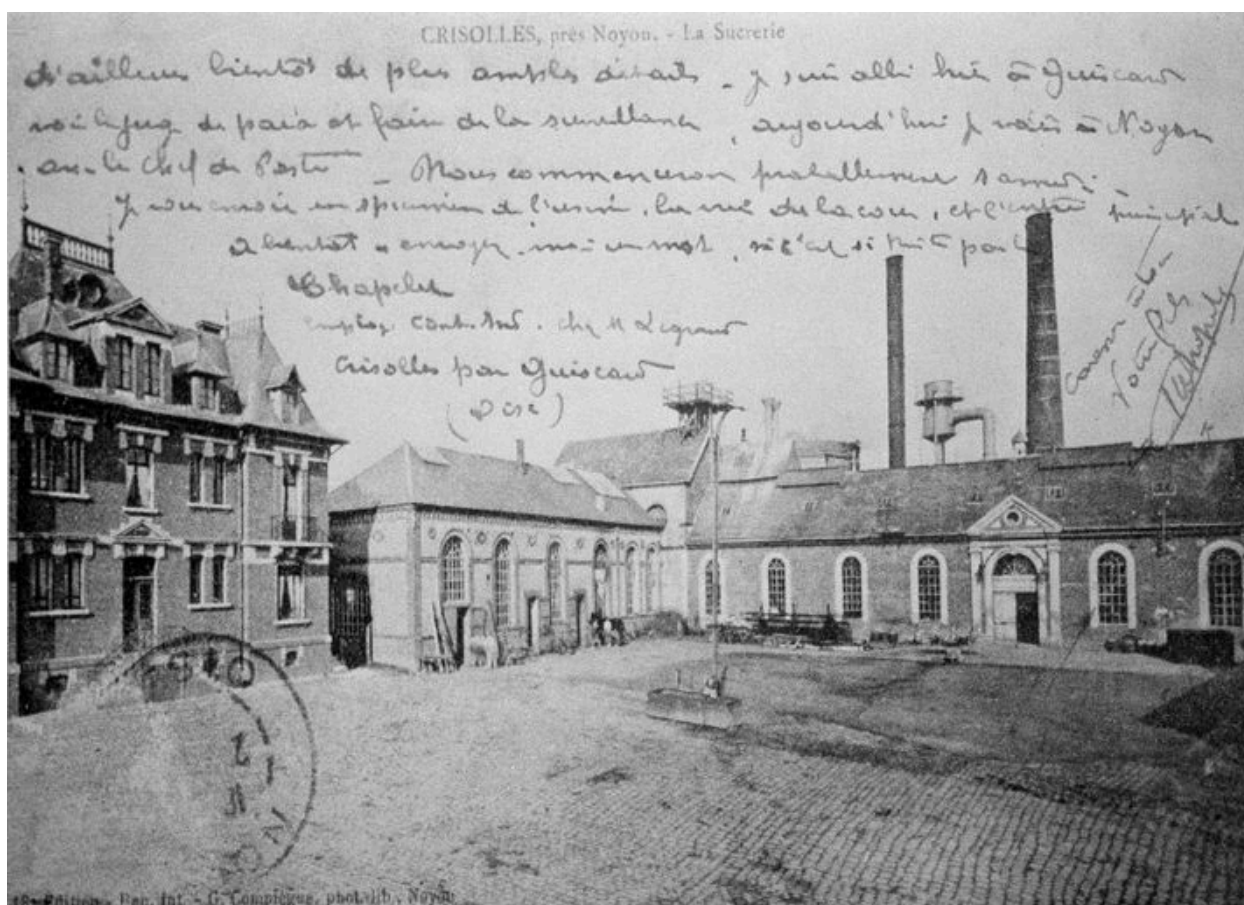 CRISOLLES, près Noyon. - La Sucrerie
d'ailleurs bientôt de plus amples détails - je suis allé hier à Guiscard
voir le juge de paix et faire de la surveillance, aujourd'hui je vais à Noyon
avec le chef de Poste - Nous commencerons probablement samedi -
Je vous envoie un spécimen de l'usine, la vue de la cour, et l'entrée principale
A bientôt envoyez-moi un mot,
Chapelet
employé chez M Legrand
Crisolles par Guiscard
(Oise)
Votre fils
Edition - Rep. Int. - G. Compiègne, phot.-lib., Noyon